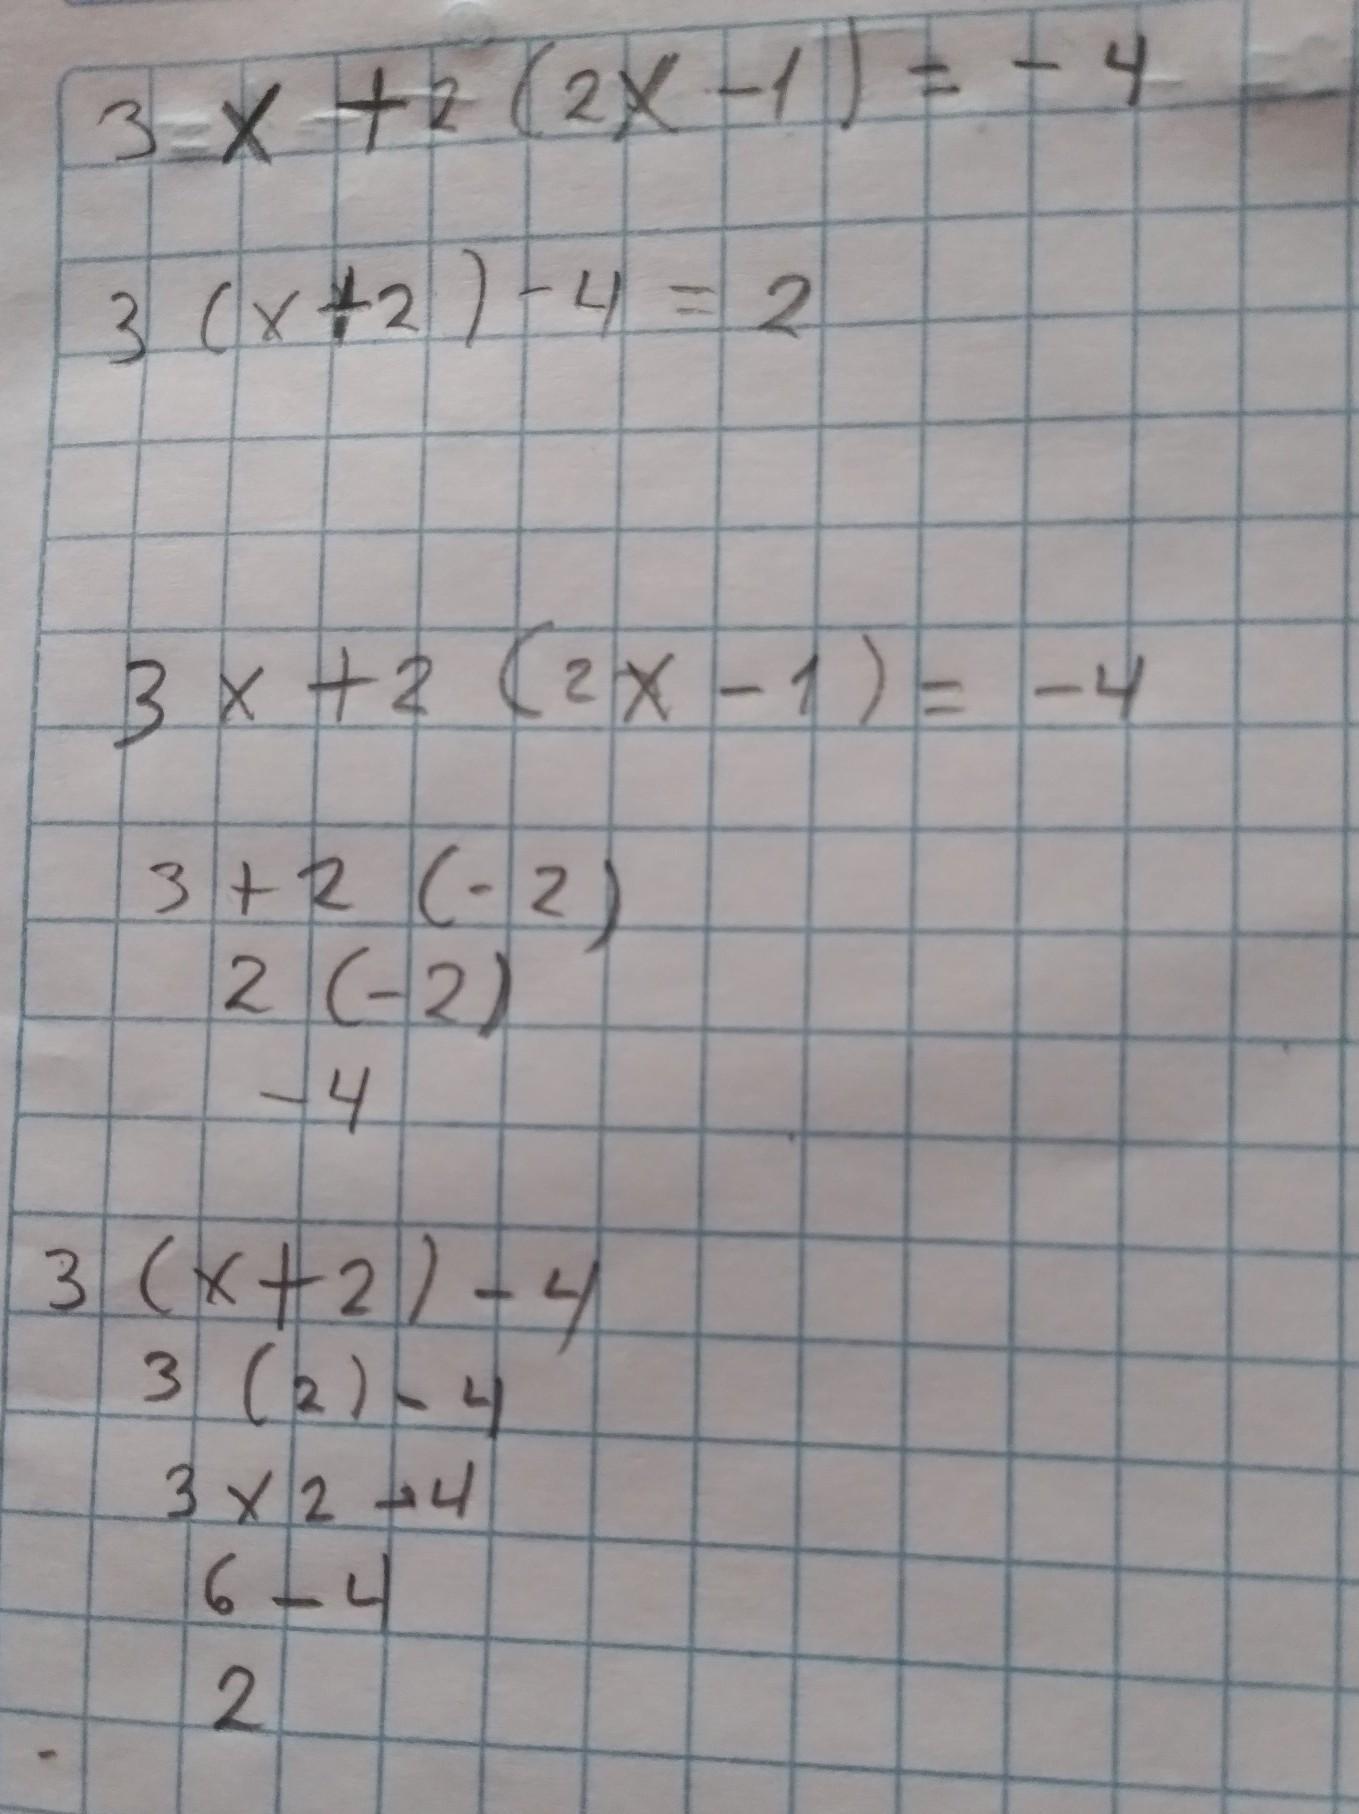 3 x + 2 (2x - 1) = - 4
3 (x + 2) - 4 = 2
3 x + 2 (2x - 1) = - 4
3 + 2 (- 2)
2 (- 2)
- 4
3 (x + 2) - 4
3 (2) - 4
3 x 2 - 4
6 - 4
2